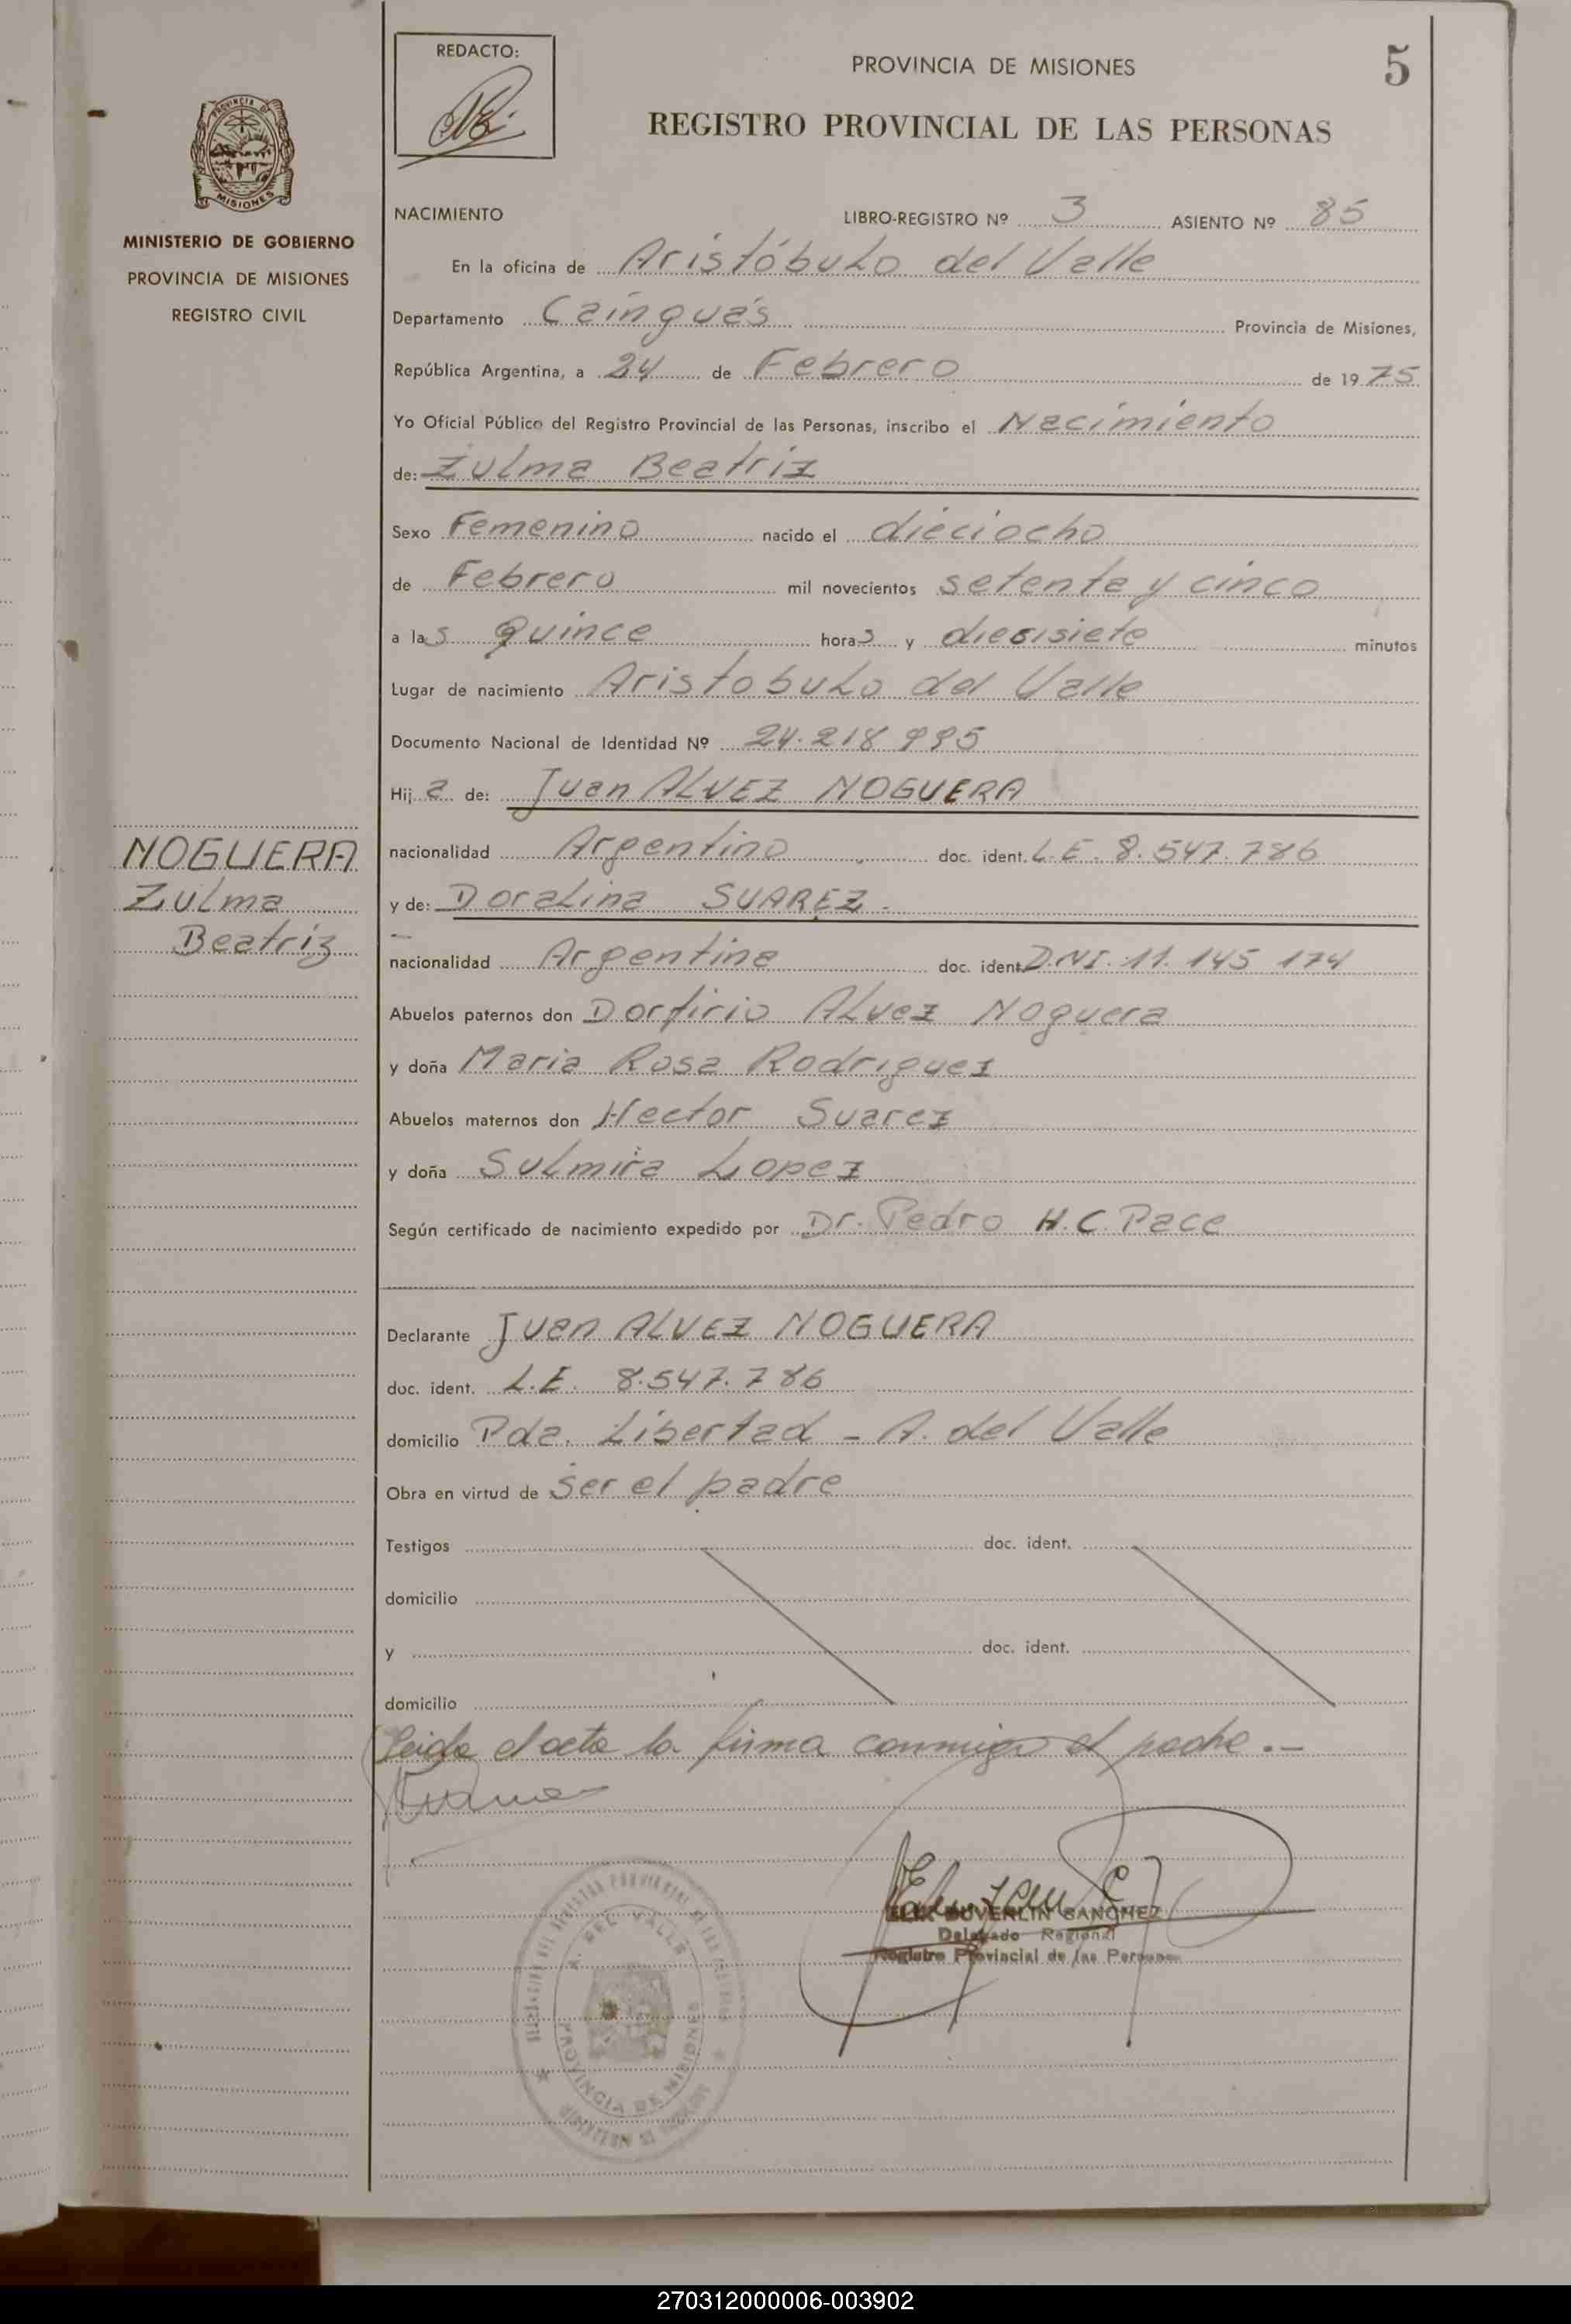 5
REDACTO:
PROVINCIA DE MISIONES
REGISTRO PROVINCIAL DE LAS PERSONAS
PROVINCIA DE
MISIONES
MINISTERIO DE GOBIERNO
PROVINCIA DE MISIONES
REGISTRO CIVIL
NACIMIENTO LIBRO-REGISTRO Nº 3 ASIENTO Nº 85
En la oficina de Aristóbulo del Valle
Departamento Cainguás Provincia de Misiones,
República Argentina, a 24 de Febrero de 1975
Yo Oficial Público del Registro Provincial de las Personas, inscribo el Nacimiento
de: Zulma Beatriz
Sexo Femenino nacido el dieciocho
de Febrero mil novecientos setenta y cinco
a las Quince horas y diesisiete minutos
Lugar de nacimiento Aristobulo del Valle
Documento Nacional de Identidad Nº 24.218 995
Hija de: Juan ALVEZ NOGUERA
nacionalidad Argentino doc. ident. L.E. 8.547.786
y de: Doralina SUAREZ.-
nacionalidad Argentina doc. ident. D.NI. 11.145 174
NOGUERA
Zulma
Beatriz
Abuelos paternos don Dorfirio Alvez Noguera
y doña Maria Rosa Rodriguez
Abuelos maternos don Hector Suarez
y doña Sulmira Lopez
Según certificado de nacimiento expedido por Dr. Pedro H.C. Pace
Declarante Juan ALVEZ NOGUERA
doc. ident. L.E. 8.547.786
domicilio Pda. Libertad - A. del Valle
Obra en virtud de ser el padre
Testigos doc. ident.
domicilio
y doc. ident.
domicilio
Leida el acta la firma conmigo el padre.-
DUVERLIN SANCHEZ
Delegado Regional
Registro Provincial de las Personas
A. DEL VALLE
PROVINCIA DE MISIONES
270312000006-003902